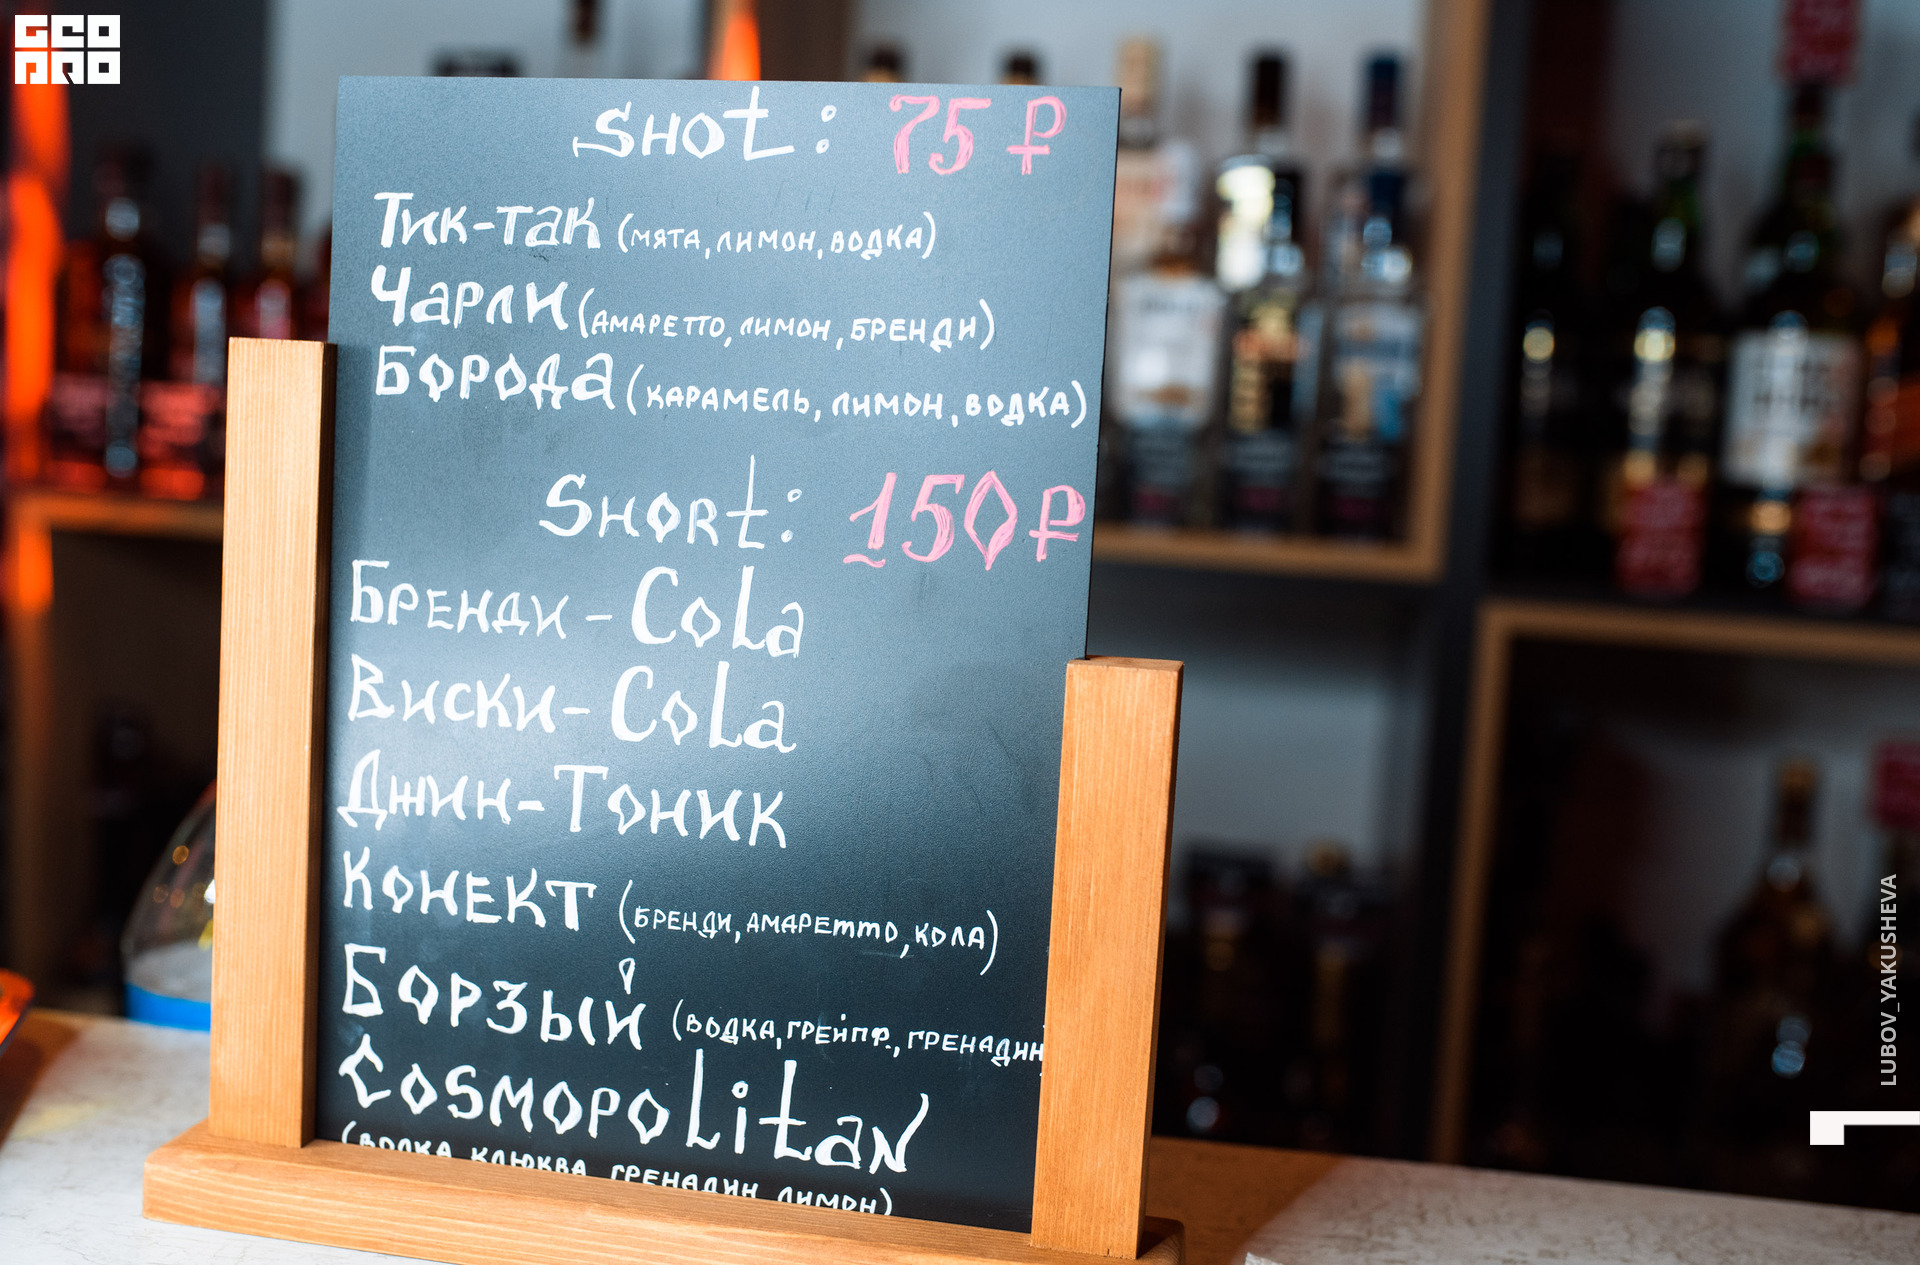 GEO
PRO
SHOT: 75 ₽
Тик-так (мята, лимон, водка)
Чарли (амаретто, лимон, бренди)
Борода (карамель, лимон, водка)
SHORT: 150 ₽
Бренди - Cola
Виски - Cola
Джин - Тоник
Конект (бренди, амаретто, кола)
Борзый (водка, грейпф., гренадин
Cosmopolitan
(водка клюква гренадин лимон)
LUBOV_YAKUSHEVA